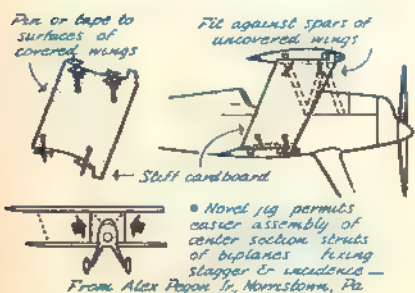 Pin or tape to
surfaces of
covered wings
Fit against spars of
uncovered wings
Stiff cardboard
• Novel jig permits
easier assembly of
center section struts
of biplanes fixing
stagger & incidence —
From Alex Pegon Jr., Norristown, Pa